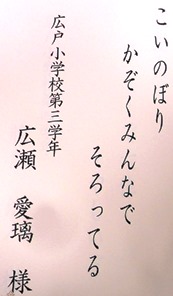 こいのぼり
かぞくみんなで
そろってる
広戸小学校第三学年
広瀬 愛璃 様